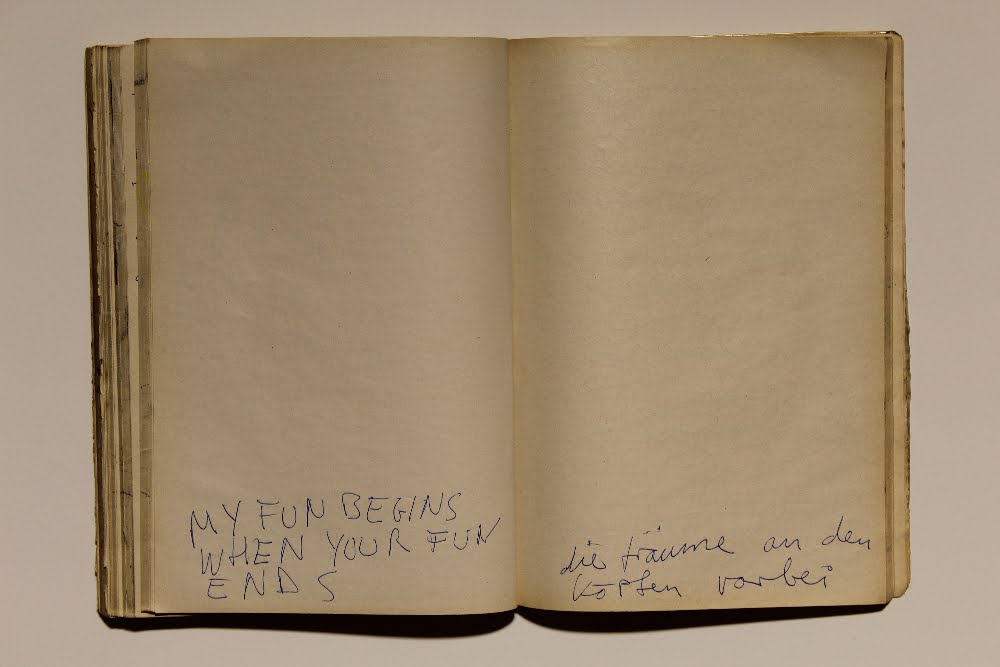 MY FUN BEGINS
WHEN YOUR FUN
ENDS
die träume an den
köpfen vorbei